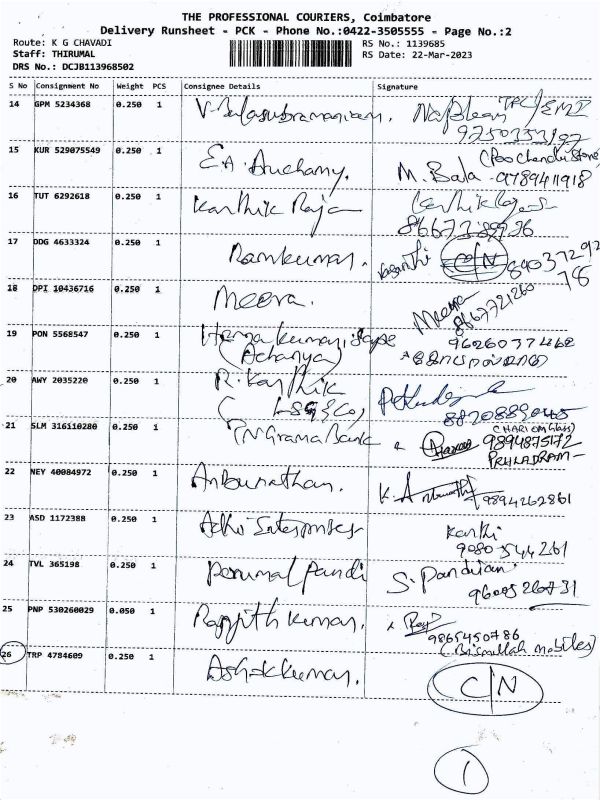 THE PROFESSIONAL COURIERS, Coimbatore
Delivery Runsheet - PCK - Phone No.:0422-3505555 - Page No.:2
Route: K G CHAVADI RS No.: 1139685
Staff: THIRUMAL RS Date: 22-Mar-2023
DRS No.: DCJB113968502
S No Consignment No Weight PCS Consignee Details Signature
14 GPM 5234368 0.250 1 V. Balasubramaniam. Napolean
9750333192
15 KUR 529075549 0.250 1 E.A. M. Bala 9789411918
16 TUT 6292618 0.250 1 Karthik Raja
17 DDG 4633324 0.250 1 Ramkumar. Vasanthi C/N 89037292
78
18 DPI 10436716 0.250 1 Meera. Meera
8667721260
19 PON 5568547 0.250 1 Hema kumari
(Achanya) 9626037462
20 AWY 2035220 0.250 1 R. Karthik
8820889045
21 SLM 316110280 0.250 1 TN Grama Bank (HARIOM Glass)
9894875172
22 NEY 40084972 0.250 1 Anbunathan. K. 9894262861
23 ASD 1172388 0.250 1 Adhi Enterprises Karthi
9080544261
24 TVL 365198 0.250 1 Perumal Pandi S. Pandian
25 PNP 530260029 0.050 1 Ranjith Kumar.
9865450786
(Bismillah mobiles)
26 TRP 4784609 0.250 1 Ashokkumar. C/N
1